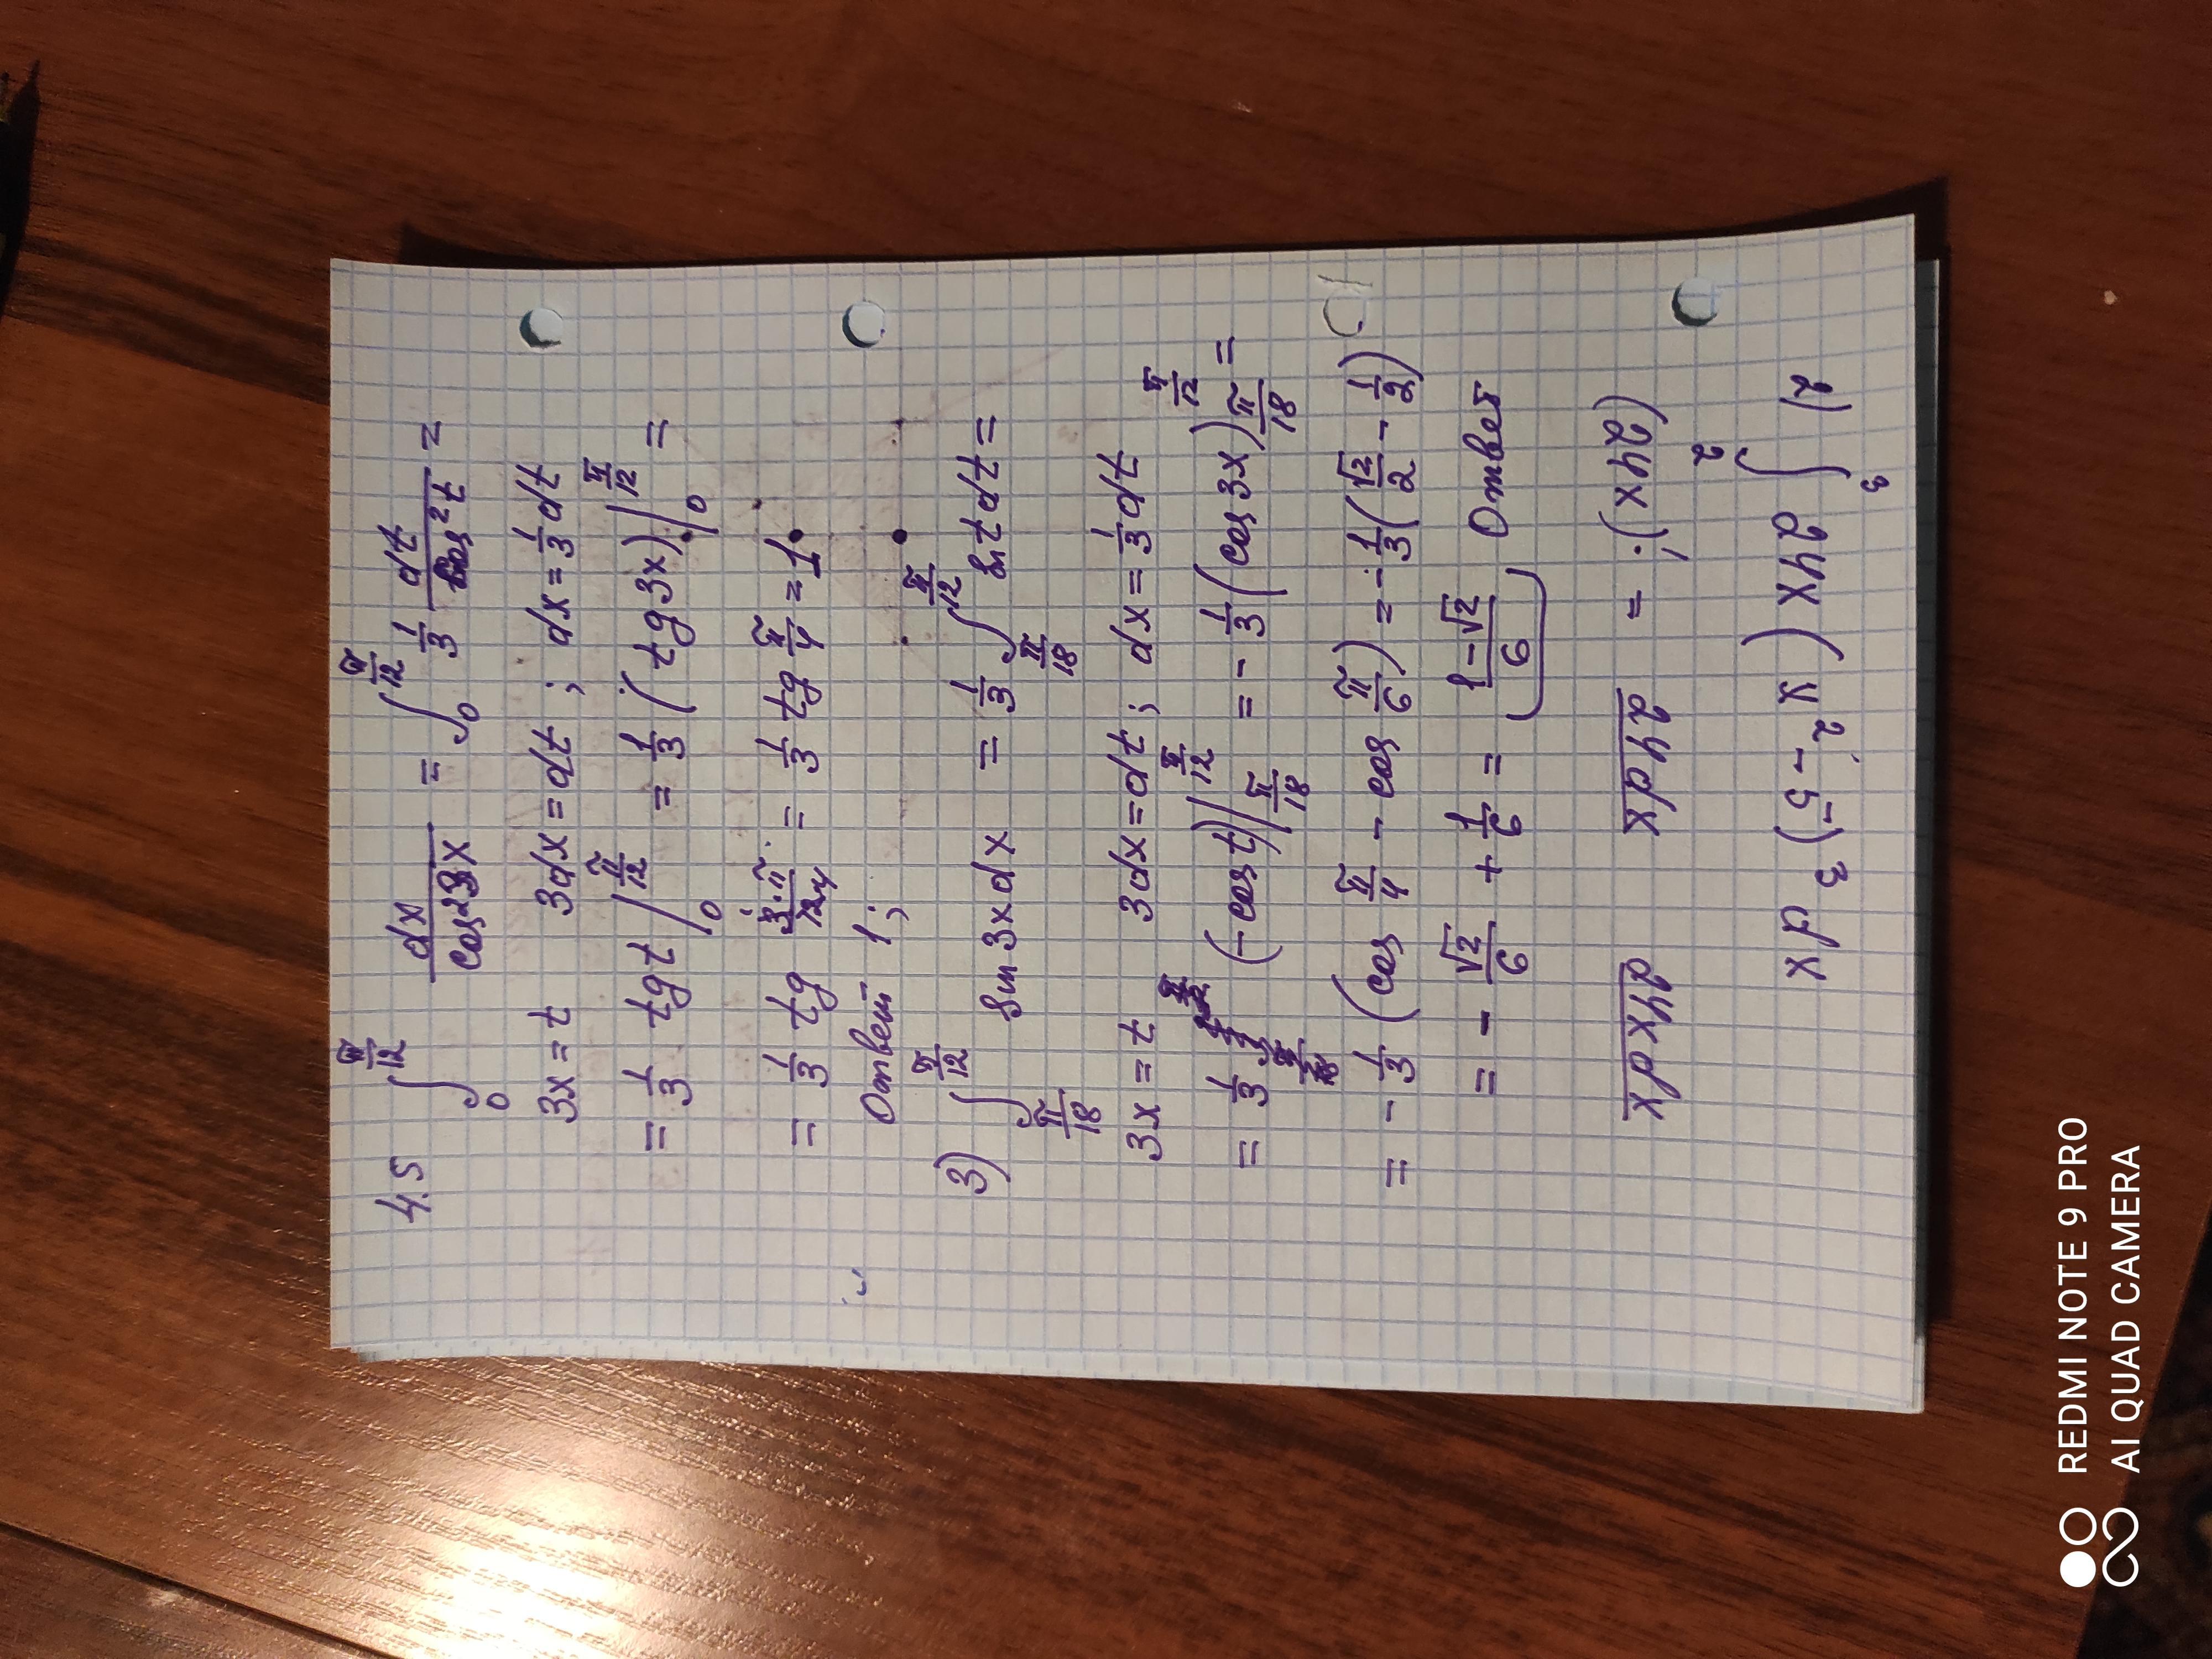 4.5 ∫₀^(π/12) dx/cos²3x = ∫₀^(π/12) 1/3 dt/cos²t =
3x = t 3dx = dt ; dx = 1/3 dt
= 1/3 tg t |₀^(π/12) = 1/3 (tg 3x) |₀^(π/12) =
= 1/3 tg 3·π/12 = 1/3 tg π/4 = 1
Ответ 1;
3) ∫_(π/18)^(π/12) sin 3x dx = 1/3 ∫_(π/18)^(π/12) sin t dt =
3x = t 3dx = dt ; dx = 1/3 dt
= 1/3 (-cos t) |_(π/18)^(π/12) = - 1/3 (cos 3x)_(π/18)^(π/12) =
= - 1/3 (cos π/4 - cos π/6) = - 1/3 (√2/2 - 1/2)
= - √2/6 + 1/6 = 1-√2/6 Ответ
24xdx 24dx = (24x)'
2) ∫₂³ 24x(x²-5)³ dx
REDMI NOTE 9 PRO
AI QUAD CAMERA